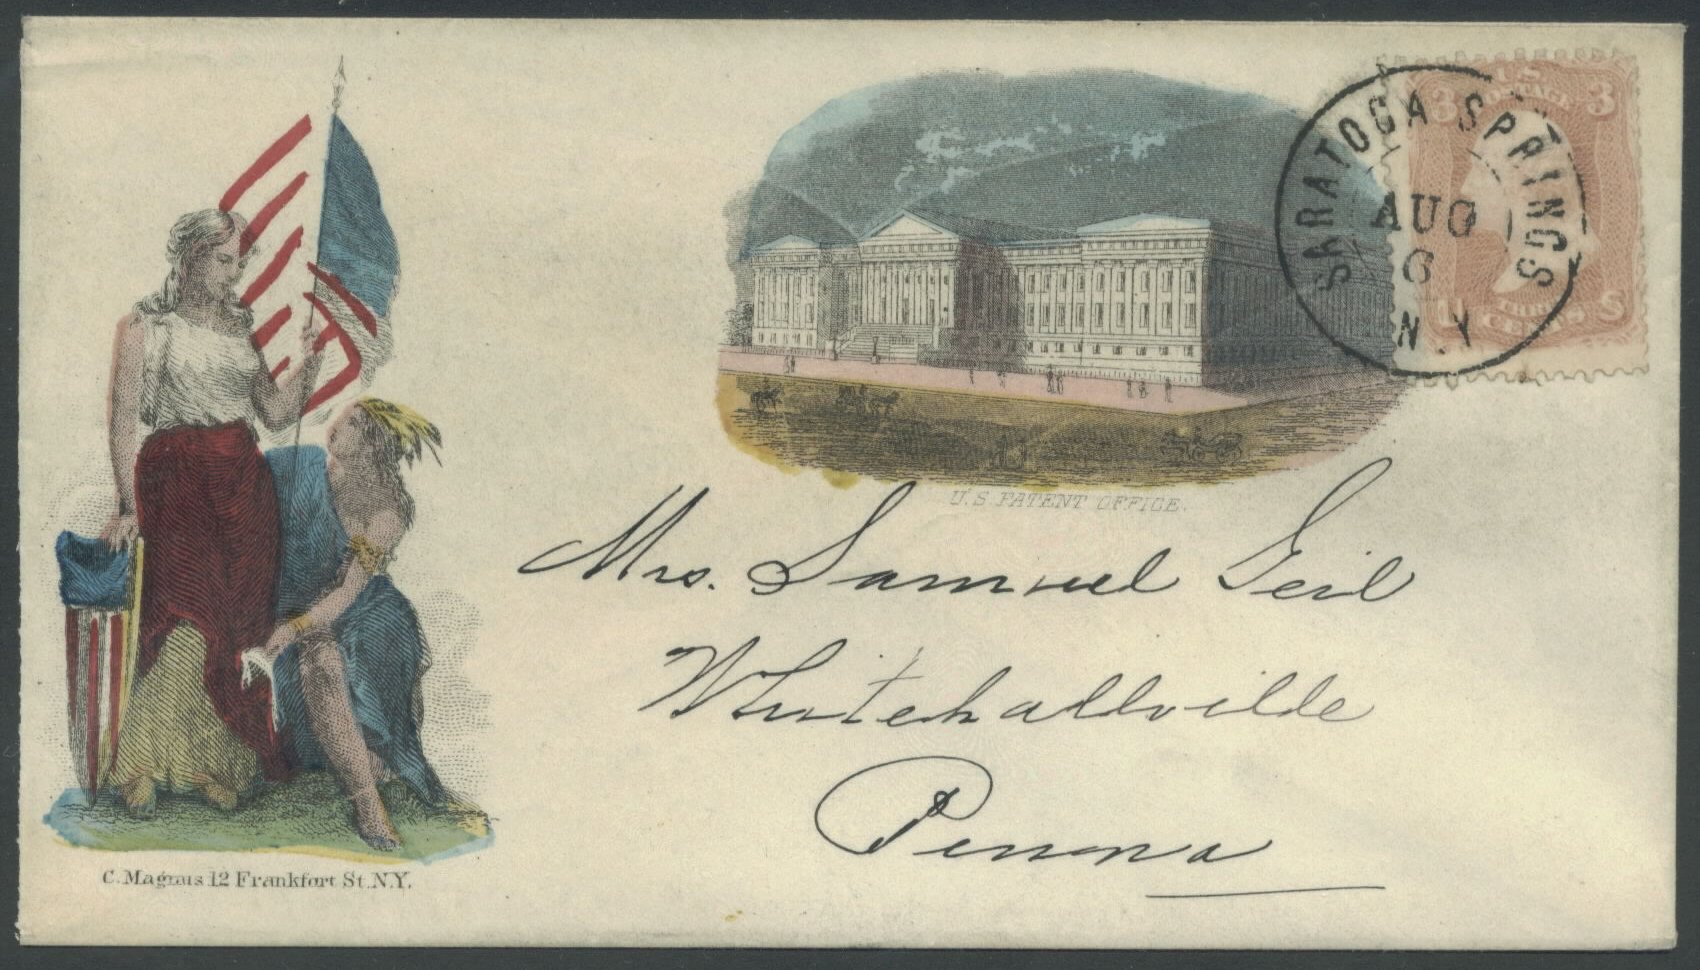 U.S. POSTAGE
3 3
THREE CENTS
U S
SARATOGA SPRINGS
AUG
6
N.Y
U.S PATENT OFFICE.
Mrs. Samuel Geil
Whitehallville
Penna
C. Magnus 12 Frankfort St. N.Y.